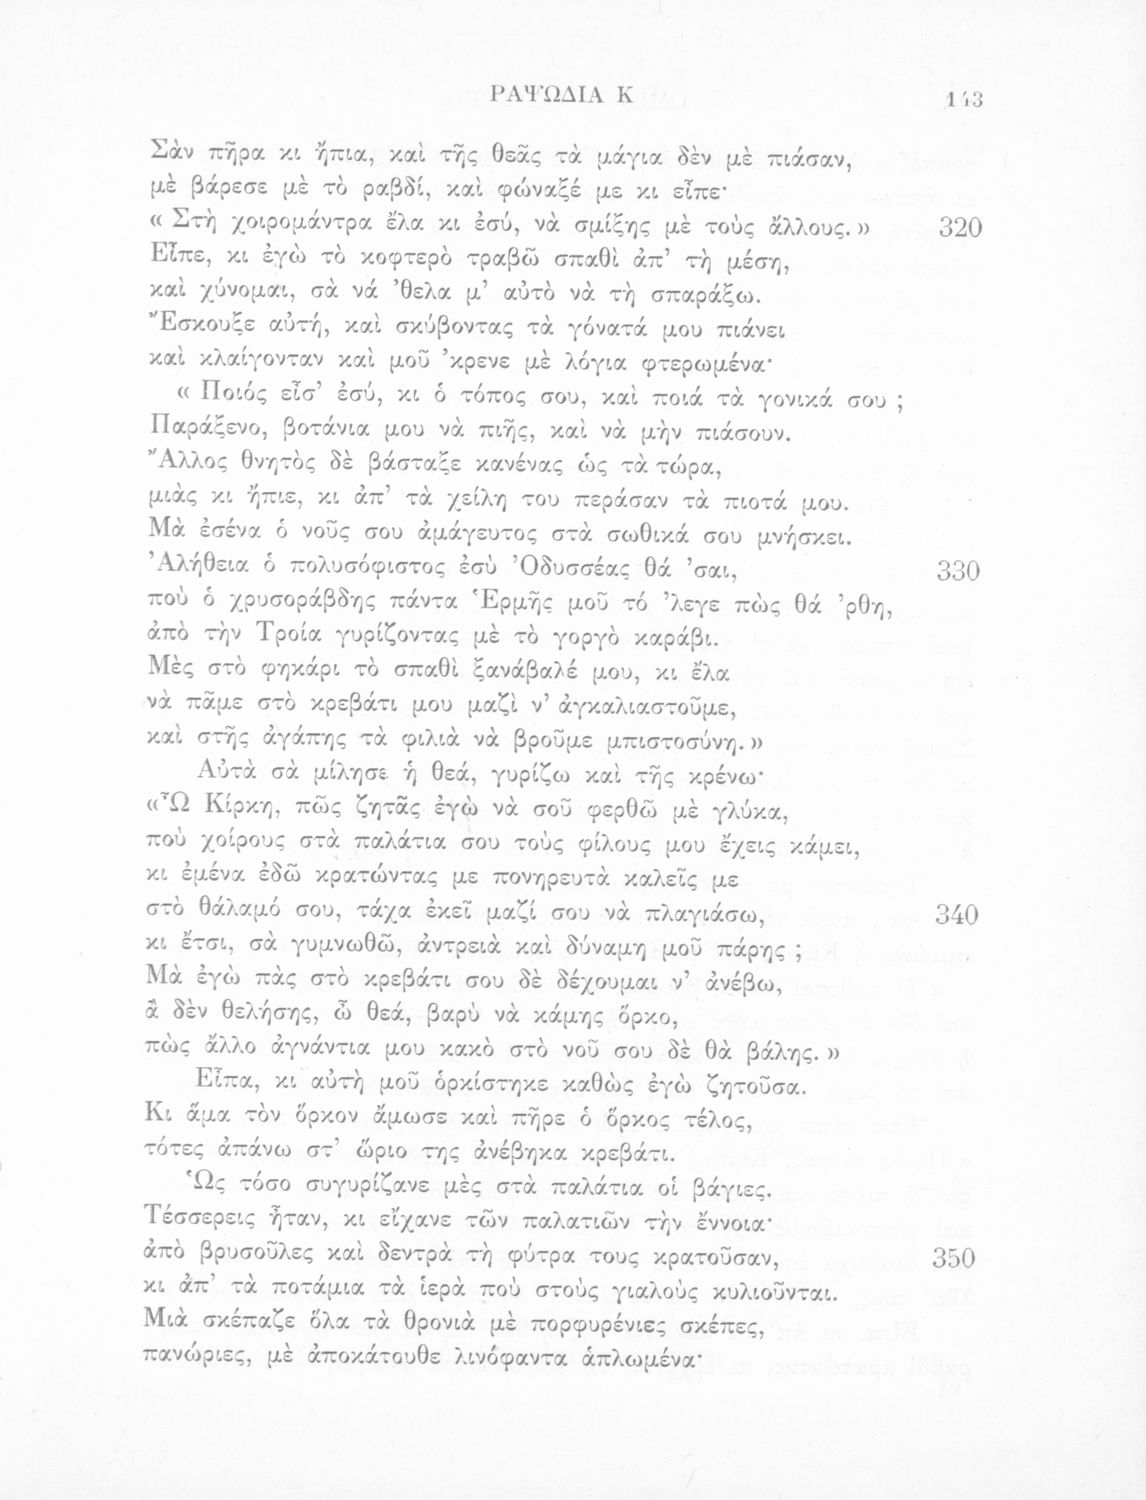 ΡΑΨΩΔΙΑ Κ 143
Σὰν πῆρα κι ἤπια, καὶ τῆς θεᾶς τὰ μάγια δὲν μὲ πιάσαν,
μὲ βάρεσε μὲ τὸ ραβδί, καὶ φώναξέ με κι εἶπε·
« Στὴ χοιρομάντρα ἔλα κι ἐσύ, νὰ σμίξης μὲ τοὺς ἄλλους. » 320
Εἶπε, κι ἐγὼ τὸ κοφτερὸ τραβῶ σπαθὶ ἀπ’ τὴ μέση,
καὶ χύνομαι, σὰ νά ’θελα μ’ αὐτὸ νὰ τὴ σπαράξω.
Ἔσκουξε αὐτή, καὶ σκύβοντας τὰ γόνατά μου πιάνει
καὶ κλαίγονταν καὶ μοῦ ’κρενε μὲ λόγια φτερωμένα·
« Ποιός εἶσ’ ἐσύ, κι ὁ τόπος σου, καὶ ποιά τὰ γονικά σου ;
Παράξενο, βοτάνια μου νὰ πιῆς, καὶ νὰ μὴν πιάσουν.
Ἄλλος θνητὸς δὲ βάσταξε κανένας ὡς τὰ τώρα,
μιὰς κι ἤπιε, κι ἀπ’ τὰ χείλη του περάσαν τὰ πιοτά μου.
Μὰ ἐσένα ὁ νοῦς σου ἀμάγευτος στὰ σωθικά σου μνήσκει.
Ἀλήθεια ὁ πολυσόφιστος ἐσὺ Ὀδυσσέας θά ’σαι, 330
ποὺ ὁ χρυσοράβδης πάντα Ἑρμῆς μοῦ τό ’λεγε πὼς θά ’ρθη,
ἀπὸ τὴν Τροία γυρίζοντας μὲ τὸ γοργὸ καράβι.
Μὲς στὸ φηκάρι τὸ σπαθὶ ξανάβαλέ μου, κι ἔλα
νὰ πᾶμε στὸ κρεβάτι μου μαζὶ ν’ ἀγκαλιαστοῦμε,
καὶ στῆς ἀγάπης τὰ φιλιὰ νὰ βροῦμε μπιστοσύνη. »
Αὐτὰ σὰ μίλησε ἡ θεά, γυρίζω καὶ τῆς κρένω·
«Ὦ Κίρκη, πῶς ζητᾶς ἐγὼ νὰ σοῦ φερθῶ μὲ γλύκα,
ποὺ χοίρους στὰ παλάτια σου τοὺς φίλους μου ἔχεις κάμει,
κι ἐμένα ἐδῶ κρατώντας με πονηρευτὰ καλεῖς με
στὸ θάλαμό σου, τάχα ἐκεῖ μαζί σου νὰ πλαγιάσω, 340
κι ἔτσι, σὰ γυμνωθῶ, ἀντρειὰ καὶ δύναμη μοῦ πάρης ;
Μὰ ἐγὼ πὰς στὸ κρεβάτι σου δὲ δέχουμαι ν’ ἀνέβω,
ἂ δὲν θελήσης, ὦ θεά, βαρὺ νὰ κάμης ὅρκο,
πὼς ἄλλο ἀγνάντια μου κακὸ στὸ νοῦ σου δὲ θὰ βάλης. »
Εἶπα, κι αὐτὴ μοῦ ὁρκίστηκε καθὼς ἐγὼ ζητοῦσα.
Κι ἅμα τὸν ὅρκον ἄμωσε καὶ πῆρε ὁ ὅρκος τέλος,
τότες ἀπάνω στ’ ὥριο της ἀνέβηκα κρεβάτι.
Ὡς τόσο συγυρίζανε μὲς στὰ παλάτια οἱ βάγιες.
Τέσσερεις ἦταν, κι εἴχανε τῶν παλατιῶν τὴν ἔννοια·
ἀπὸ βρυσοῦλες καὶ δεντρὰ τὴ φύτρα τους κρατοῦσαν, 350
κι ἀπ’ τὰ ποτάμια τὰ ἱερὰ ποὺ στοὺς γιαλοὺς κυλιοῦνται.
Μιὰ σκέπαζε ὅλα τὰ θρονιὰ μὲ πορφυρένιες σκέπες,
πανώριες, μὲ ἀποκάτουθε λινόφαντα ἁπλωμένα·